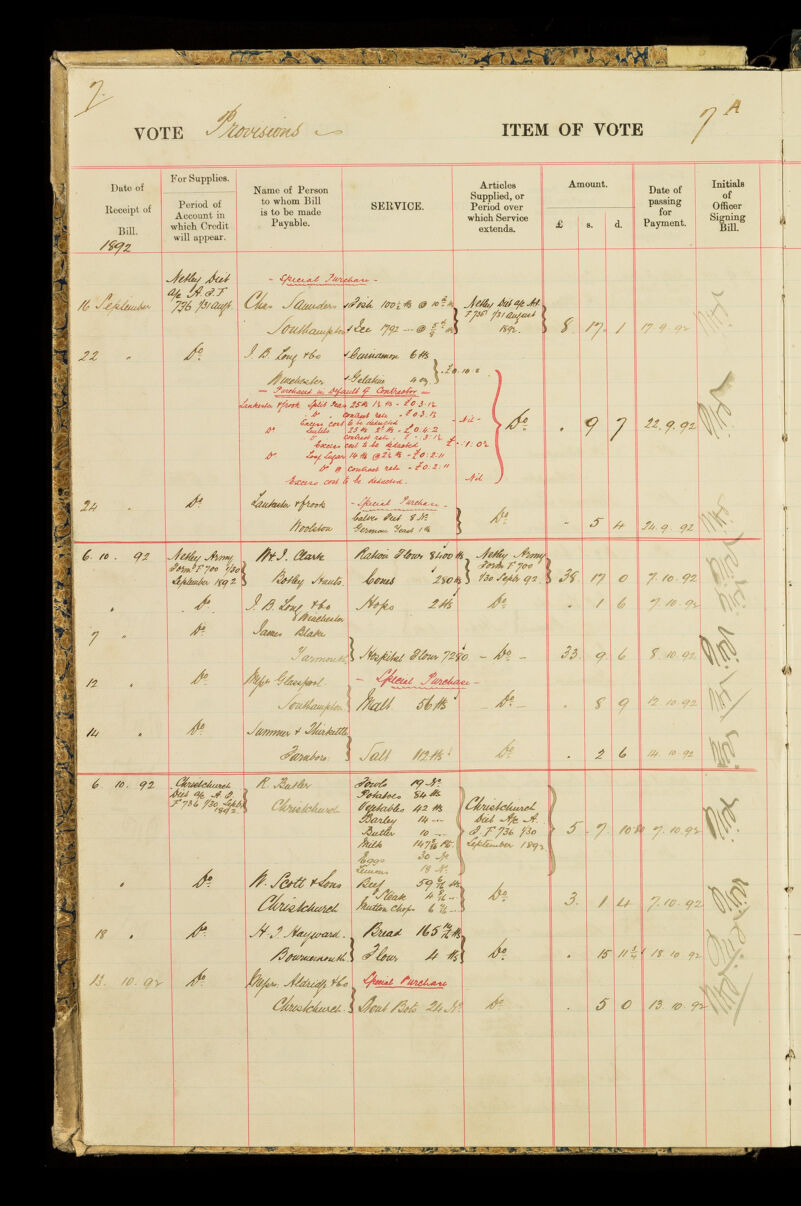 7.
VOTE Provisions
ITEM OF VOTE 7 A
Date of Receipt of Bill.
For Supplies.
Period of Account in which Credit will appear.
Name of Person to whom Bill is to be made Payable.
SERVICE.
Articles Supplied, or Period over which Service extends.
Amount.
£ s. d.
Date of passing for Payment.
Initials of Officer Signing Bill.
1892
Netley Diet - Special Purchase -
a/c A. J. F
16 September 736 1/31 Augt. Chas Saunders Fish 100½ lbs @ 10 Netley Diet a/c
F 736 1/31 August
Southampton Ice 1792 1892. 8. 17. 1 17. 9. 92
22 " Do J. B. Long & Co Cinnamon 6 lbs
Winchester Gelatine 4 oz. £0.10.2
- Purchased in Default of Contractor -
Lankester & Crook Split Peas 25 lbs 1½ lb - £0.3.1½
Do contract rate - £0.3.1½
Excess cost to be deducted - Nil -
Do Lentils 25 lbs 2d lb - £0.4.2
contract rate
Excess cost to be deducted £ - : 1 : 0½
Do Loaf Sugar 14 lbs @ 2½ lb - £0:2:11
Do @ Contract rate - £0:2:11
Excess cost to be deducted. Nil
Do . 9 7 22. 9. 92
24 " Do Lankester & Crook - Special Purchase -
Calves Feet 8 No
Woolston German Yeast 1 lb Do - 5 4 24. 9. 92
6. 10. 92 Netley Army W. J. Clark Ration Flour 8400 lbs Netley Army
Form F 700 1/30 Form F 700
September 1892 Botley Hants. Cones 280 lbs 1/30 Septr 92 38 17 0 7. 10. 92
" Do. J. B. Long & Co Hops 2 lbs Do . 1 6 7. 10. 92
Winchester
7 " Do James Blake
Yarmouth Hospital Flour 7280 - Do - 33. 9. 6 8. 10. 92
12 . Do Messrs Glasspool - Special Purchase -
Southampton Malt 56 lbs - Do - . 8 9 12. 10. 92
14 " Do Summer & Thirkettle
Salt 112 lbs Do . 2 6 14. 10. 92
6. 10. 92 Christchurch R. Butler Fowls 19 No
Diet a/c A. J. Potatoes 84 lbs
F 736 1/30 Septr 1892 Christchurch Vegetables 42 lbs Christchurch
Barley 14 --- Diet A/c A.
Butter 10 --- J. F 736 1/30
Milk September 1892 5 - 7. 7. 10. 92
Eggs 30 No
Lemons 18 No
" Do W. Scott & Sons Beef
Steak
Christchurch Mutton Chops Do 3. 1 4 7. 10. 92
18 . Do H. J. Hayward. Bread
Bournemouth Flour 4 lbs Do . 15 11¼ 18 10 92
13. 10. 92 Do Messrs. Aldridge & Co Special Purchase
Christchurch. Stout Bots 24 No Do . 5 0 13. 10. 92